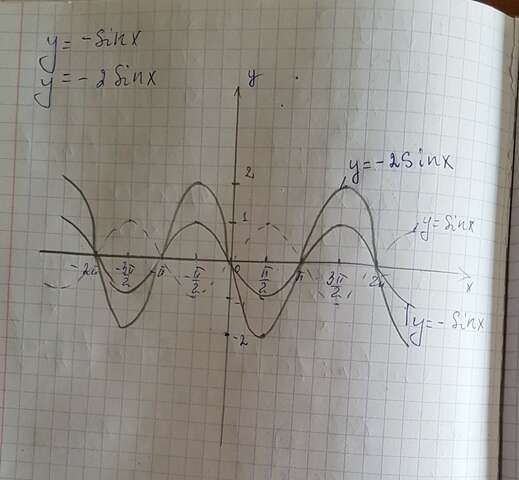 y = -sinx
y = -2sinx
y
2
y=-2sinx
1
y=sinx
-2π -3π/2 -π -π/2 0 π/2 π 3π/2 2π x
y=-sinx
-2